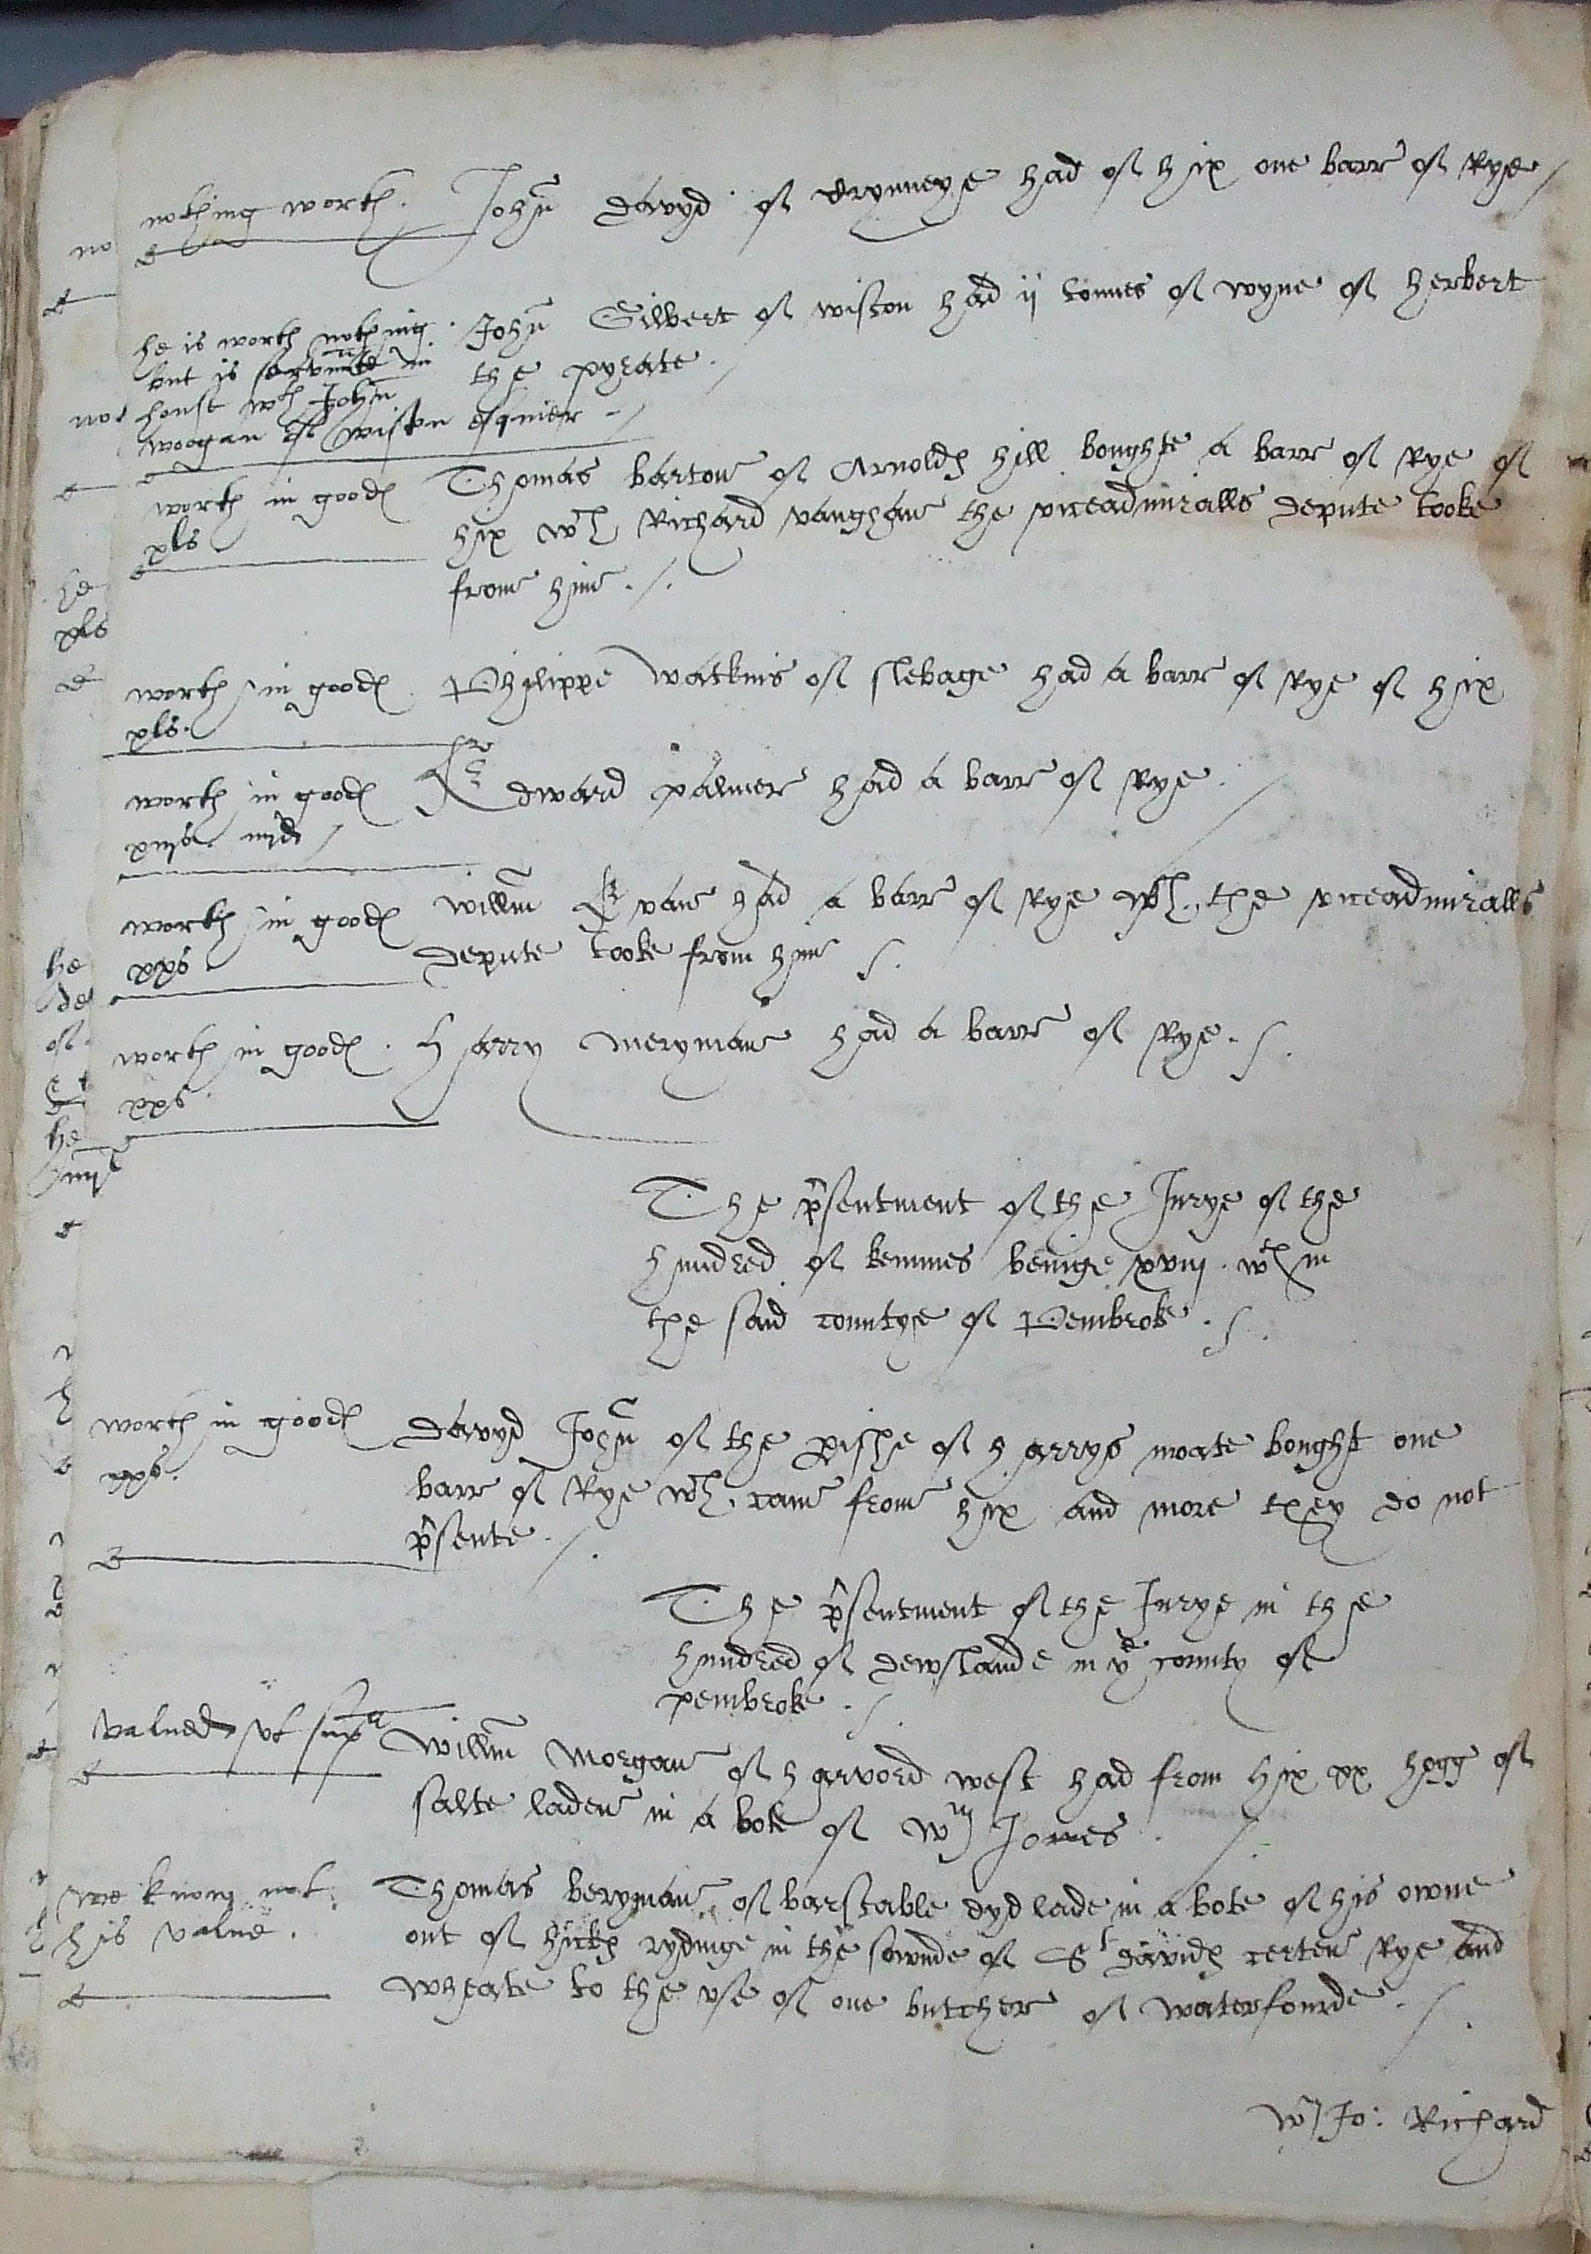 nothing worth. John david of Prynneye had of hix one barr of Rye /
he is worth nothing.
but is servante in
house wth John
woogan of wiston esquier ./
John Gilbert of wiston had ij tonnes of wyne of herbert
the pyrate ./
worth in goodes
xls
Thomas bartone of Arnoldes hill boughte a barr of Rye of
hix wch Richard vaughan the viceadmiralls depute tooke
from him ./.
worth in goodes
xls.
Philippe watkins of slebage had a barr of Rye of hix
worth in goodes
xiijs iiijd /
Edward palmer had a barr of Rye. /
worth in goodes
xxs
willm Evans had a barr of Rye wch the viceadmiralls
depute tooke from him /.
worth in goodes.
xxs.
Harry meryman had a barr of Rye. /.
The psentment of the Jurye of the
hundred of kemmes beinge xviij. wthin
the said countye of Pembroke. /.
worth in goodes
xxs.
david John of the pishe of harrys moate bought one
barr of Rye wch came from hix and more they do not
psente ./.
The psentment of the Jurye in the
hundred of dewslande in ye county of
pembroke. /.
valued vt supa
willm Morgan of harvord west had from hix xx hogg of
salte laden in a bote of Wm Jones. /
we know not
his value.
Thomas beryman of barstable dyd lade in a bote of his owne
out of hickes rydinge in the sounde of St davides certen Rye and
wheate to the vse of one butcher of waterfourde. /.
Jo: Richard